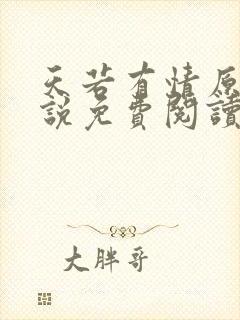 天若有情原
說免費閱讀
大胖哥